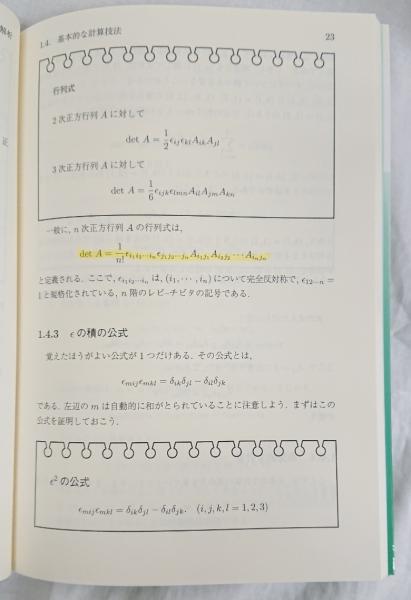 1.4. 基本的な計算技法 23
行列式
2次正方行列 A に対して
det A = \frac{1}{2} ϵ_{ij}ϵ_{kl}A_{ik}A_{jl}
3次正方行列 A に対して
det A = \frac{1}{6} ϵ_{ijk}ϵ_{lmn}A_{il}A_{jm}A_{kn}
一般に, n 次正方行列 A の行列式は,
det A = \frac{1}{n!} ϵ_{i_1 i_2 ⋯ i_n}ϵ_{j_1 j_2 ⋯ j_n}A_{i_1 j_1}A_{i_2 j_2} ⋯ A_{i_n j_n}
と定義される. ここで, ϵ_{i_1 i_2 ⋯ i_n} は, (i_1, ⋯, i_n) について完全反対称で, ϵ_{12⋯n} =
1 と規格化されている, n 階のレビ−チビタの記号である.
1.4.3 ϵ の積の公式
覚えたほうがよい公式が1つだけある. その公式とは,
ϵ_{mij}ϵ_{mkl} = δ_{ik}δ_{jl} − δ_{il}δ_{jk}
である. 左辺の m は自動的に和がとられていることに注意しよう. まずはこの
公式を証明しておこう.
ϵ² の公式
ϵ_{mij}ϵ_{mkl} = δ_{ik}δ_{jl} − δ_{il}δ_{jk}. (i, j, k, l = 1, 2, 3)